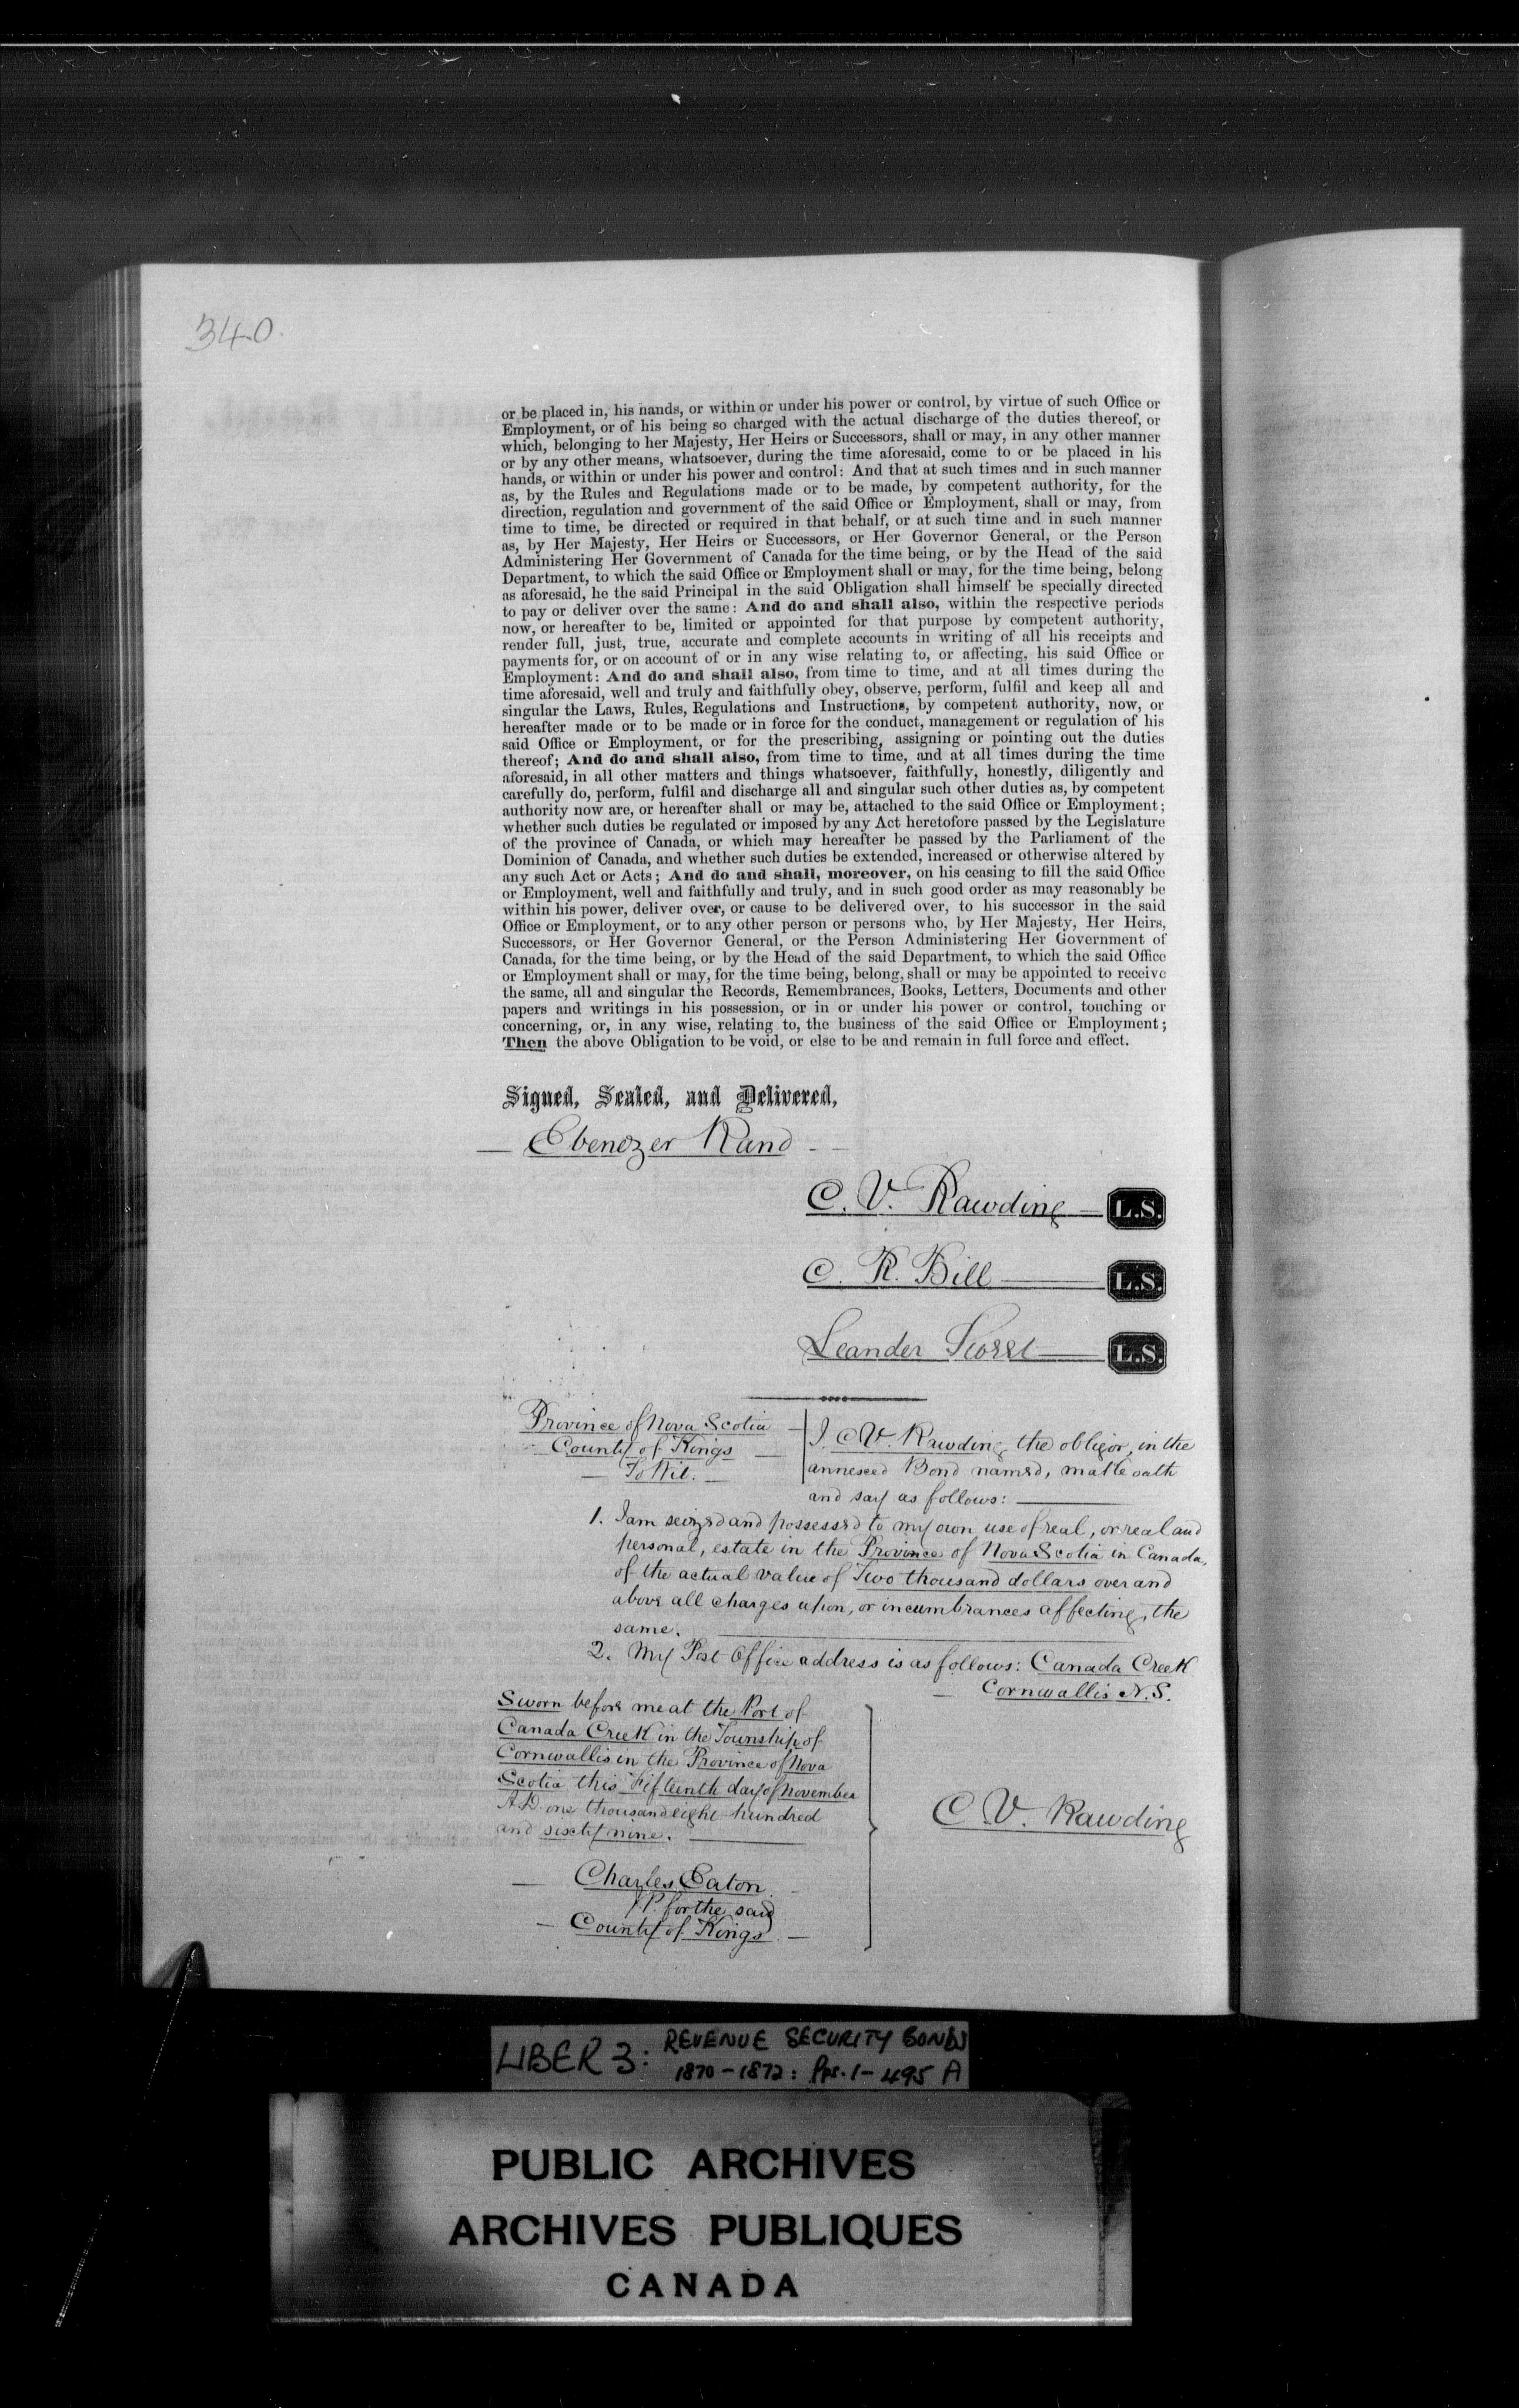 340.
or be placed in, his hands, or within or under his power or control, by virtue of such Office or
Employment, or of his being so charged with the actual discharge of the duties thereof, or
which, belonging to her Majesty, Her Heirs or Successors, shall or may, in any other manner
or by any other means, whatsoever, during the time aforesaid, come to or be placed in his
hands, or within or under his power and control: And that at such times and in such manner
as, by the Rules and Regulations made or to be made, by competent authority, for the
direction, regulation and government of the said Office or Employment, shall or may, from
time to time, be directed or required in that behalf, or at such time and in such manner
as, by Her Majesty, Her Heirs or Successors, or Her Governor General, or the Person
Administering Her Government of Canada for the time being, or by the Head of the said
Department, to which the said Office or Employment shall or may, for the time being, belong
as aforesaid, he the said Principal in the said Obligation shall himself be specially directed
to pay or deliver over the same: And do and shall also, within the respective periods
now, or hereafter to be, limited or appointed for that purpose by competent authority,
render full, just, true, accurate and complete accounts in writing of all his receipts and
payments for, or on account of or in any wise relating to, or affecting, his said Office or
Employment: And do and shall also, from time to time, and at all times during the
time aforesaid, well and truly and faithfully obey, observe, perform, fulfil and keep all and
singular the Laws, Rules, Regulations and Instructions, by competent authority, now, or
hereafter made or to be made or in force for the conduct, management or regulation of his
said Office or Employment, or for the prescribing, assigning or pointing out the duties
thereof; And do and shall also, from time to time, and at all times during the time
aforesaid, in all other matters and things whatsoever, faithfully, honestly, diligently and
carefully do, perform, fulfil and discharge all and singular such other duties as, by competent
authority now are, or hereafter shall or may be, attached to the said Office or Employment;
whether such duties be regulated or imposed by any Act heretofore passed by the Legislature
of the province of Canada, or which may hereafter be passed by the Parliament of the
Dominion of Canada, and whether such duties be extended, increased or otherwise altered by
any such Act or Acts; And do and shall, moreover, on his ceasing to fill the said Office
or Employment, well and faithfully and truly, and in such good order as may reasonably be
within his power, deliver over, or cause to be delivered over, to his successor in the said
Office or Employment, or to any other person or persons who, by Her Majesty, Her Heirs,
Successors, or Her Governor General, or the Person Administering Her Government of
Canada, for the time being, or by the Head of the said Department, to which the said Office
or Employment shall or may, for the time being, belong, shall or may be appointed to receive
the same, all and singular the Records, Remembrances, Books, Letters, Documents and other
papers and writings in his possession, or in or under his power or control, touching or
concerning, or, in any wise, relating to, the business of the said Office or Employment;
Then the above Obligation to be void, or else to be and remain in full force and effect.
Signed, Sealed, and Delivered,
Ebenezer Rand
C. V. Rawding L.S.
C. R. Bill L.S.
Leander L.S.
Province of Nova Scotia
County of Kings
To Wit.
I. C. V. Rawding, the obligor, in the
annexed Bond named, make oath
and say as follows:
1. I am seized and possessed to my own use of real, or real and
personal, estate in the Province of Nova Scotia in Canada,
of the actual value of Two thousand dollars over and
above all charges upon, or incumbrances affecting, the
same.
2. My Post Office address is as follows: Canada Creek
Cornwallis N.S.
Sworn before me at the Port of
Canada Creek in the Township of
Cornwallis in the Province of Nova
Scotia this Fifteenth day of November
A.D. one thousand eight hundred
and sixty nine.
C. V. Rawding
Charles Eaton
J.P. for the said
County of Kings
LIBER 3: REVENUE SECURITY BONDS
1870-1872: Pps. 1-495 A
PUBLIC ARCHIVES
ARCHIVES PUBLIQUES
CANADA